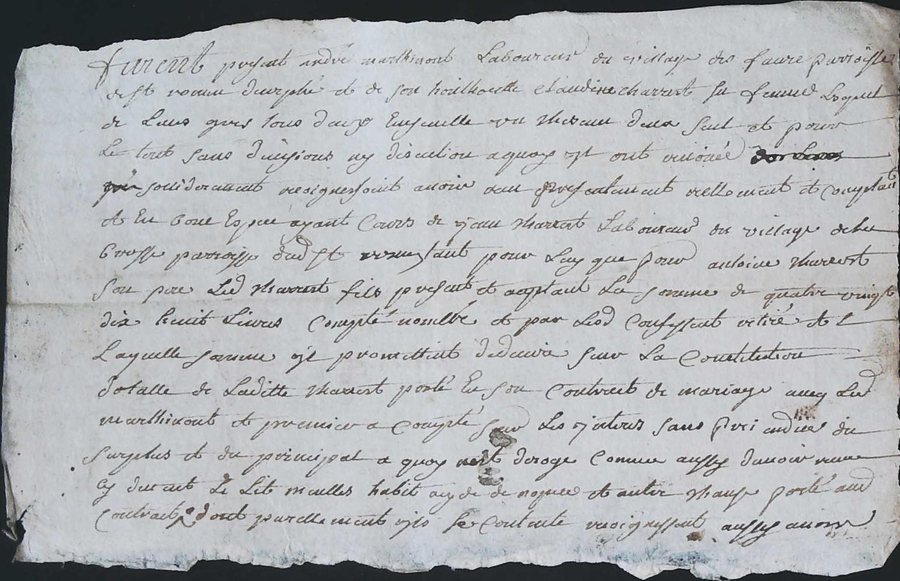 furent present andré marthinont Laboureur du village des faure parroisse
de st romin durphé et de son hotthoritte Claudine charrest sa femme Lesquels
de Leurs grés tous deux Ensemble un chescun deux seul et pour
Le tout sans divisions ny discution a quoy ils ont renoncé
solideremant recoignessent avoir au presentement reellement et comptant
et En bone Espece ayant Cours de jean charrest Laboureur du village de la
Brosse parroisse dud st tant pour Luy que pour antoine charrest
son pere Led charrest fils present et aceptant La somme de quatre vingt
dix huit Livres Compté nombré et par Led Confessent retiré et
Laquelle somme ils promettent deduire sur La Constitution
dotalle de Laditte charrest porté En son Contrait de mariage avec Led
marthinont et premier a compté sur Les interes sans prejudice du
surplus et du principal a quoy nest deroge Comme aussy davoir
cy devant Le Lit meubles habit et autre chause porté aud
Contrait dont parellement ils se Contente recoignessent aussy avoir